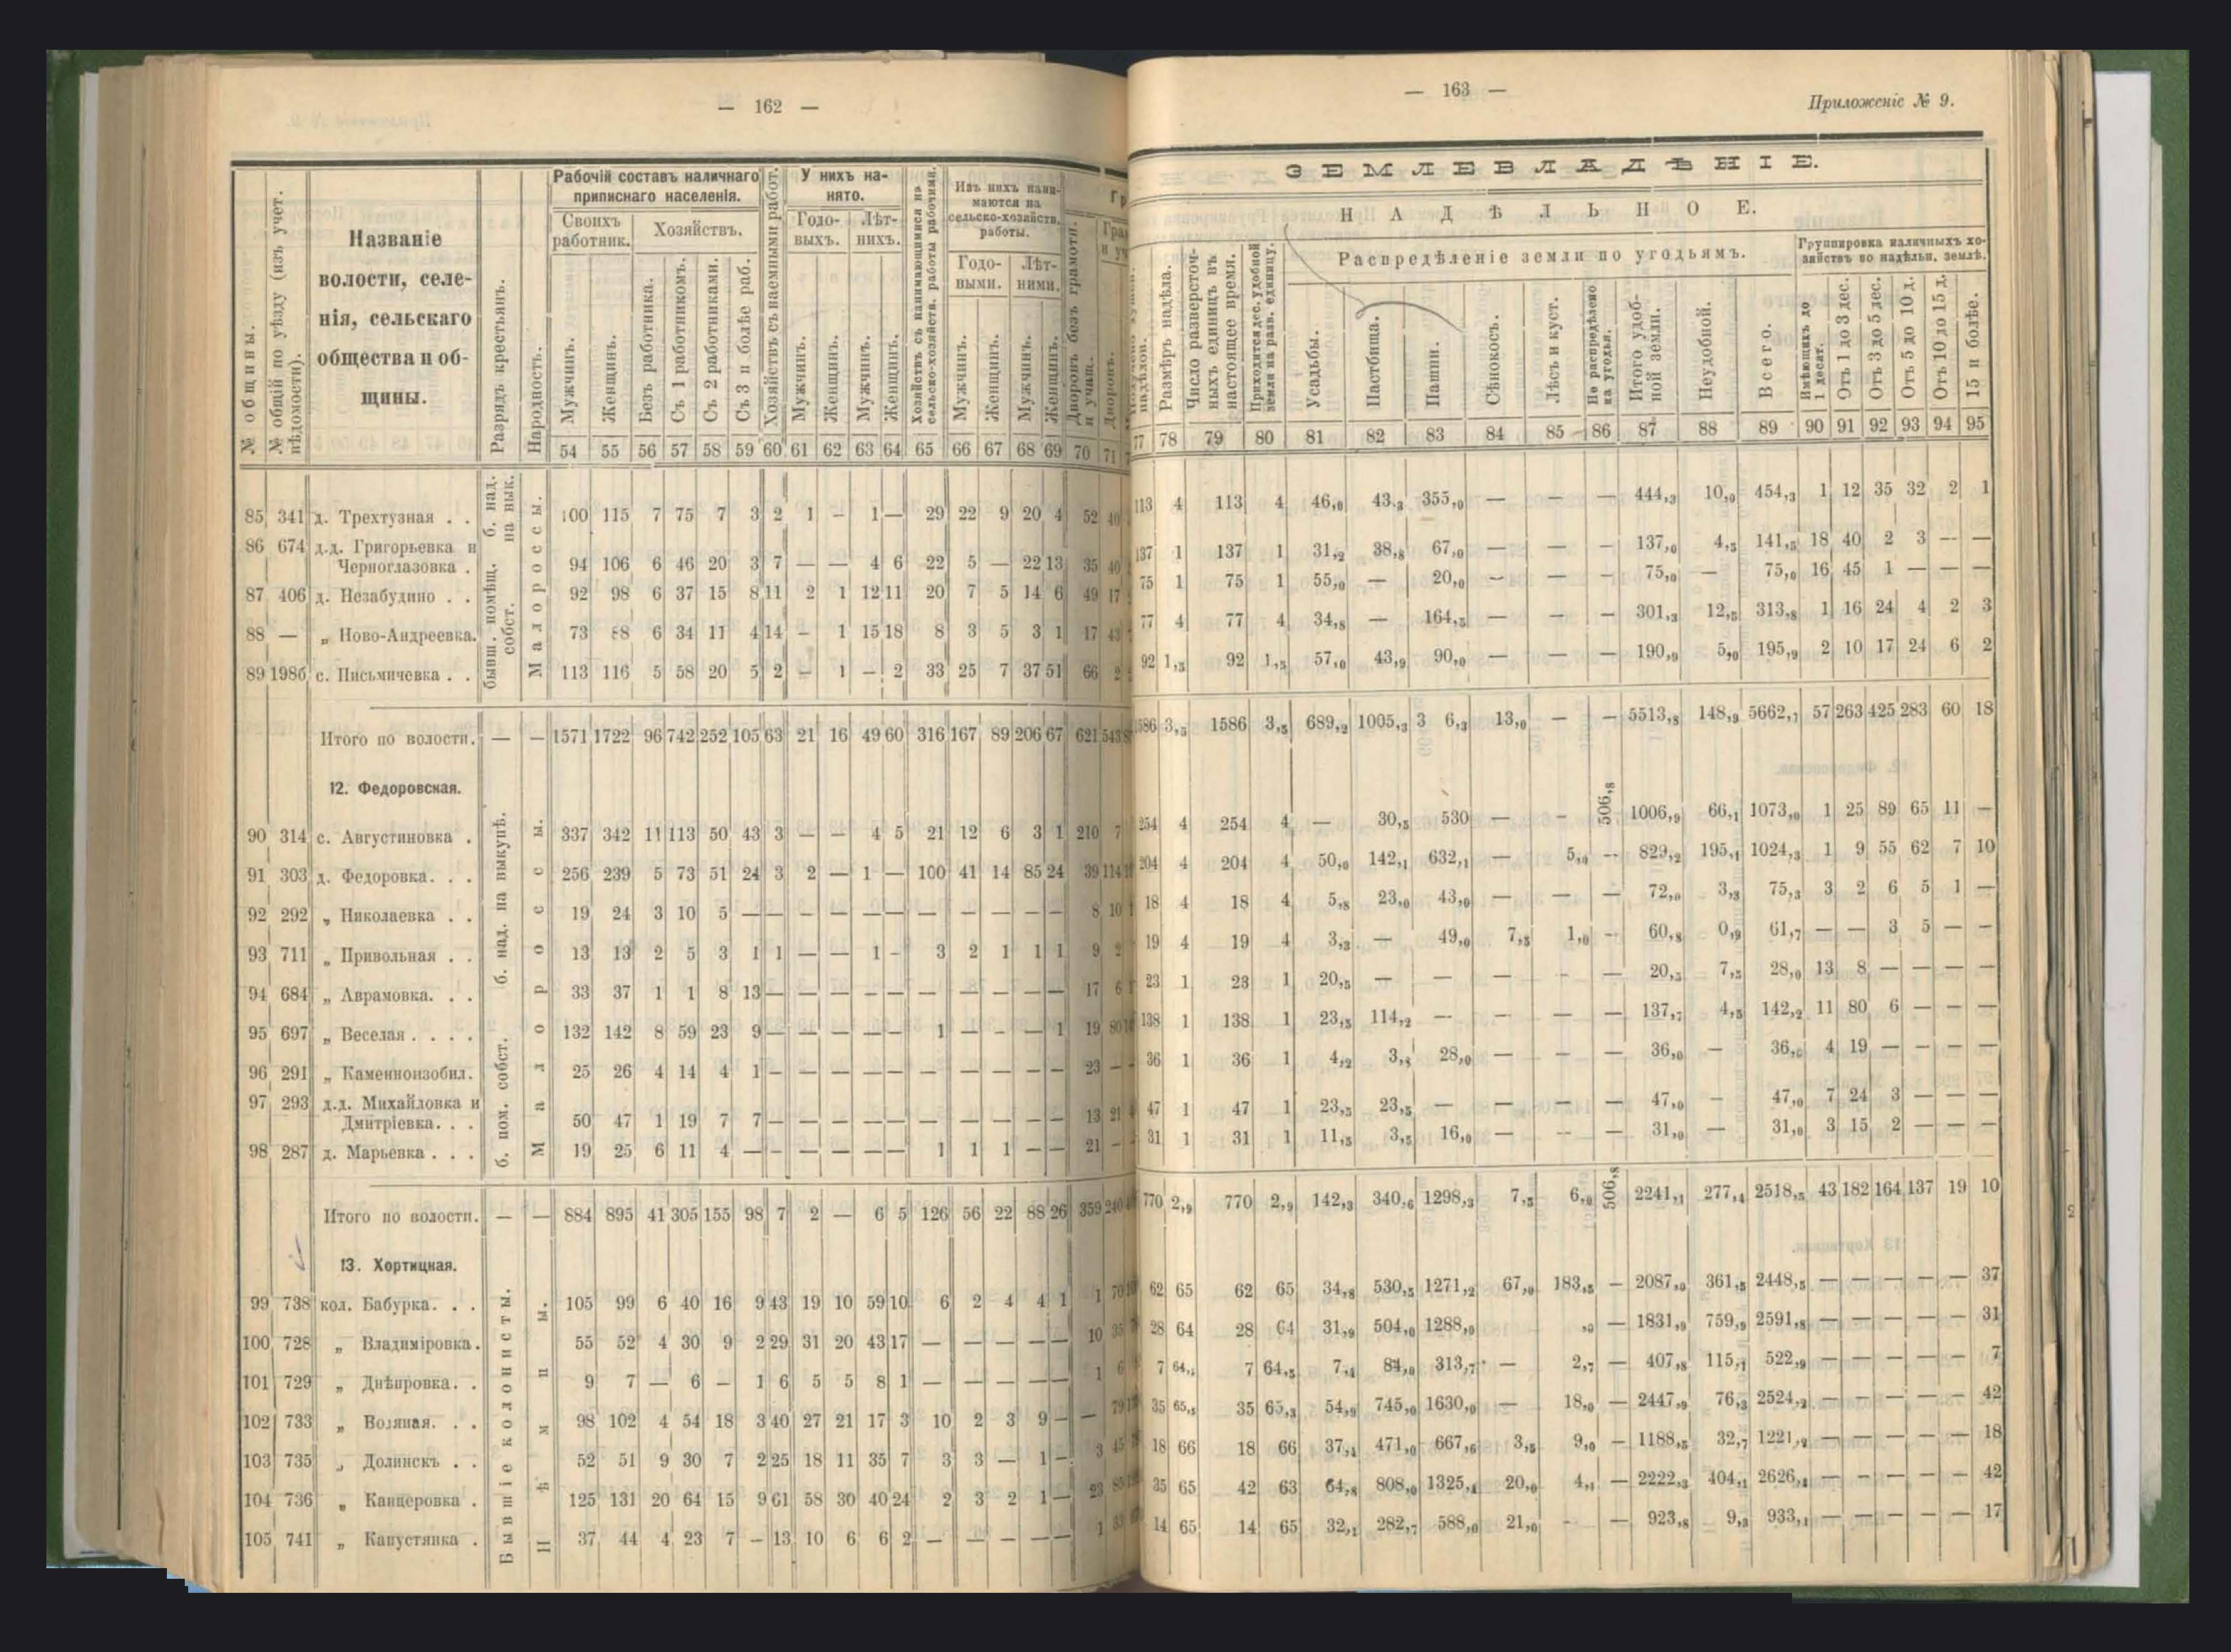 — 162 —
Названіе
волости, селе-
нія, сельскаго
общества и об-
щины.
№ общины.
№ общій по уѣзду (изъ учет.
вѣдомости).
Разрядъ крестьянъ.
Народность.
Рабочій составъ наличнаго
приписнаго населенія.
Своихъ
работник.
Хозяйствъ.
Мужчинъ.
Женщинъ.
Безъ работника.
Съ 1 работникомъ.
Съ 2 работниками.
Съ 3 и болѣе раб.
Хозяйствъ съ наемными работ.
У нихъ на-
нято.
Годо-
выхъ.
Лѣт-
нихъ.
Мужчинъ.
Женщинъ.
Мужчинъ.
Женщинъ.
Хозяйствъ съ нанимающимися на
сельско-хозяйств. работы рабочими.
Изъ нихъ нани-
маются на
сельско-хозяйств.
работы.
Годо-
выми.
Лѣт-
ними.
Мужчинъ.
Женщинъ.
Мужчинъ.
Женщинъ.
Дворовъ безъ грамотн.
и учащ.
Дворовъ.
54 55 56 57 58 59 60 61 62 63 64 65 66 67 68 69 70 71
бывш. помѣщ. б. над.
собст. на вык.
Малороссы.
85 341 д. Трехтузная . . 100 115 7 75 7 3 2 1 — 1 — 29 22 9 20 4 52 40
86 674 д.д. Григорьевка и
Черноглазовка . 94 106 6 46 20 3 7 — — 4 6 22 5 — 22 13 35 40
87 406 д. Незабудино . . 92 98 6 37 15 8 11 2 1 12 11 20 7 5 14 6 49 17
88 — „ Ново-Андреевка. 73 88 6 34 11 4 14 — 1 15 18 8 3 5 3 1 17 43
89 198б с. Письмичевка . . 113 116 5 58 20 5 2 — 1 — 2 33 25 7 37 51 66 2
Итого по волости. — — 1571 1722 96 742 252 105 63 21 16 49 60 316 167 89 206 67 621 543
12. Федоровская.
б. пом. собст. б. над. на выкупѣ.
Малороссы.
90 314 с. Августиновка . 337 342 11 113 50 43 3 — — 4 5 21 12 6 3 1 210 7
91 303 д. Федоровка. . . 256 239 5 73 51 24 3 2 — 1 — 100 41 14 85 24 39 114
92 292 „ Николаевка . . 19 24 3 10 5 — — — — — — — — — — — 8 10
93 711 „ Привольная . . 13 13 2 5 3 1 1 — — 1 - 3 2 1 1 1 9 2
94 684 „ Аврамовка. . . 33 37 1 1 8 13 — — — — — — — — — — 17 6
95 697 „ Веселая . . . . 132 142 8 59 23 9 — — — — — 1 — - — 1 19 80
96 291 „ Каменноизобил. 25 26 4 14 4 1 — — — — — — — — — — 23 —
97 293 д.д. Михайловка и
Дмитріевка. . . 50 47 1 19 7 7 — — — — — — — — — — 13 21
98 287 д. Марьевка . . . 19 25 6 11 4 — — — — — — 1 1 1 — — 21 —
Итого по волости. — — 884 895 41 305 155 98 7 2 — 6 5 126 56 22 88 26 359 240
13. Хортицкая.
Бывшіе колонисты.
Нѣмцы.
99 738 кол. Бабурка. . . 105 99 6 40 16 9 43 19 10 59 10 6 2 4 4 1 1 70
100 728 „ Владиміровка. 55 52 4 30 9 2 29 31 20 43 17 — — — — — 10 35
101 729 „ Днѣпровка. . 9 7 — 6 — 1 6 5 5 8 1 — — — — — 1 6
102 733 „ Водяная. . . 98 102 4 54 18 3 40 27 21 17 3 10 2 3 9 — — 79
103 735 „ Долинскъ . . 52 51 9 30 7 2 25 18 11 35 7 3 3 — 1 — 3 45
104 736 „ Канцеровка . 125 131 20 64 15 9 61 58 30 40 24 2 3 2 1 — 23 85
105 741 „ Капустянка . 37 44 4 23 7 — 13 10 6 6 2 — — — — — 1 33
— 163 —
Приложеніе № 9.
ЗЕМЛЕВЛАДѢНІЕ.
НАДѢЛЬНОЕ.
надѣловъ.
Размѣръ надѣла.
Число разверсточ-
ныхъ единицъ въ
настоящее время.
Приходится дес. удобной
земли на разв. единицу.
Распредѣленіе земли по угодьямъ.
Усадьбы.
Пастбища.
Пашни.
Сѣнокосъ.
Лѣсъ и куст.
Не распредѣлено
на угодья.
Итого удоб-
ной земли.
Неудобной.
Всего.
Группировка наличныхъ хо-
зяйствъ по надѣльн. землѣ.
Имѣющихъ до
1 десят.
Отъ 1 до 3 дес.
Отъ 3 до 5 дес.
Отъ 5 до 10 д.
Отъ 10 до 15 д.
15 и болѣе.
77 78 79 80 81 82 83 84 85 86 87 88 89 90 91 92 93 94 95
113 4 113 4 46,0 43,3 355,0 — — — 444,3 10,0 454,3 1 12 35 32 2 1
137 1 137 1 31,2 38,8 67,0 — — — 137,0 4,5 141,5 18 40 2 3 — —
75 1 75 1 55,0 — 20,0 — — — 75,0 — 75,0 16 45 1 — — —
77 4 77 4 34,8 — 164,5 — — — 301,3 12,5 313,8 1 16 24 4 2 3
92 1,5 92 1,5 57,0 43,9 90,0 — — — 190,9 5,0 195,9 2 10 17 24 6 2
1586 3,5 1586 3,5 689,2 1005,3 3 6,3 13,0 — — 5513,8 148,9 5662,7 57 263 425 283 60 18
254 4 254 4 — 30,5 530 — — 506,8 1006,9 66,1 1073,0 1 25 89 65 11 —
204 4 204 4 50,0 142,1 632,1 — 5,0 — 829,2 195,1 1024,3 1 9 55 62 7 10
18 4 18 4 5,8 23,0 43,0 — — — 72,0 3,3 75,3 3 2 6 5 1 —
19 4 19 4 3,3 — 49,0 7,5 1,0 — 60,8 0,9 61,7 — — 3 5 — —
23 1 23 1 20,5 — — — — — 20,5 7,5 28,0 13 8 — — — —
138 1 138 1 23,5 114,2 — — — — 137,7 4,5 142,2 11 80 6 — — —
36 1 36 1 4,2 3,8 28,0 — — — 36,0 — 36,0 4 19 — — — —
47 1 47 1 23,5 23,5 — — — — 47,0 — 47,0 7 24 3 — — —
31 1 31 1 11,5 3,5 16,0 — — — 31,0 — 31,0 3 15 2 — — —
770 2,9 770 2,9 142,3 340,6 1298,3 7,5 6,0 506,8 2241,1 277,4 2518,5 43 182 164 137 19 10
62 65 62 65 34,8 530,5 1271,2 67,0 183,5 — 2087,0 361,5 2448,5 — — — — — 37
28 64 28 64 31,9 504,0 1288,0 ,0 — 1831,9 759,9 2591,8 — — — — — 31
7 64,5 7 64,5 7,4 84,0 313,7 — 2,7 — 407,8 115,1 522,9 — — — — — 7
35 65,3 35 65,3 54,9 745,0 1630,0 — 18,0 — 2447,9 76,3 2524,2 — — — — — 42
18 66 18 66 37,4 471,0 667,6 3,5 9,0 — 1188,5 32,7 1221,2 — — — — — 18
35 65 42 63 64,8 808,0 1325,4 20,0 4,1 — 2222,3 404,1 2626,4 — — — — — 42
14 65 14 65 32,1 282,7 588,0 21,0 - — 923,8 9,3 933,1 — — — — — 17